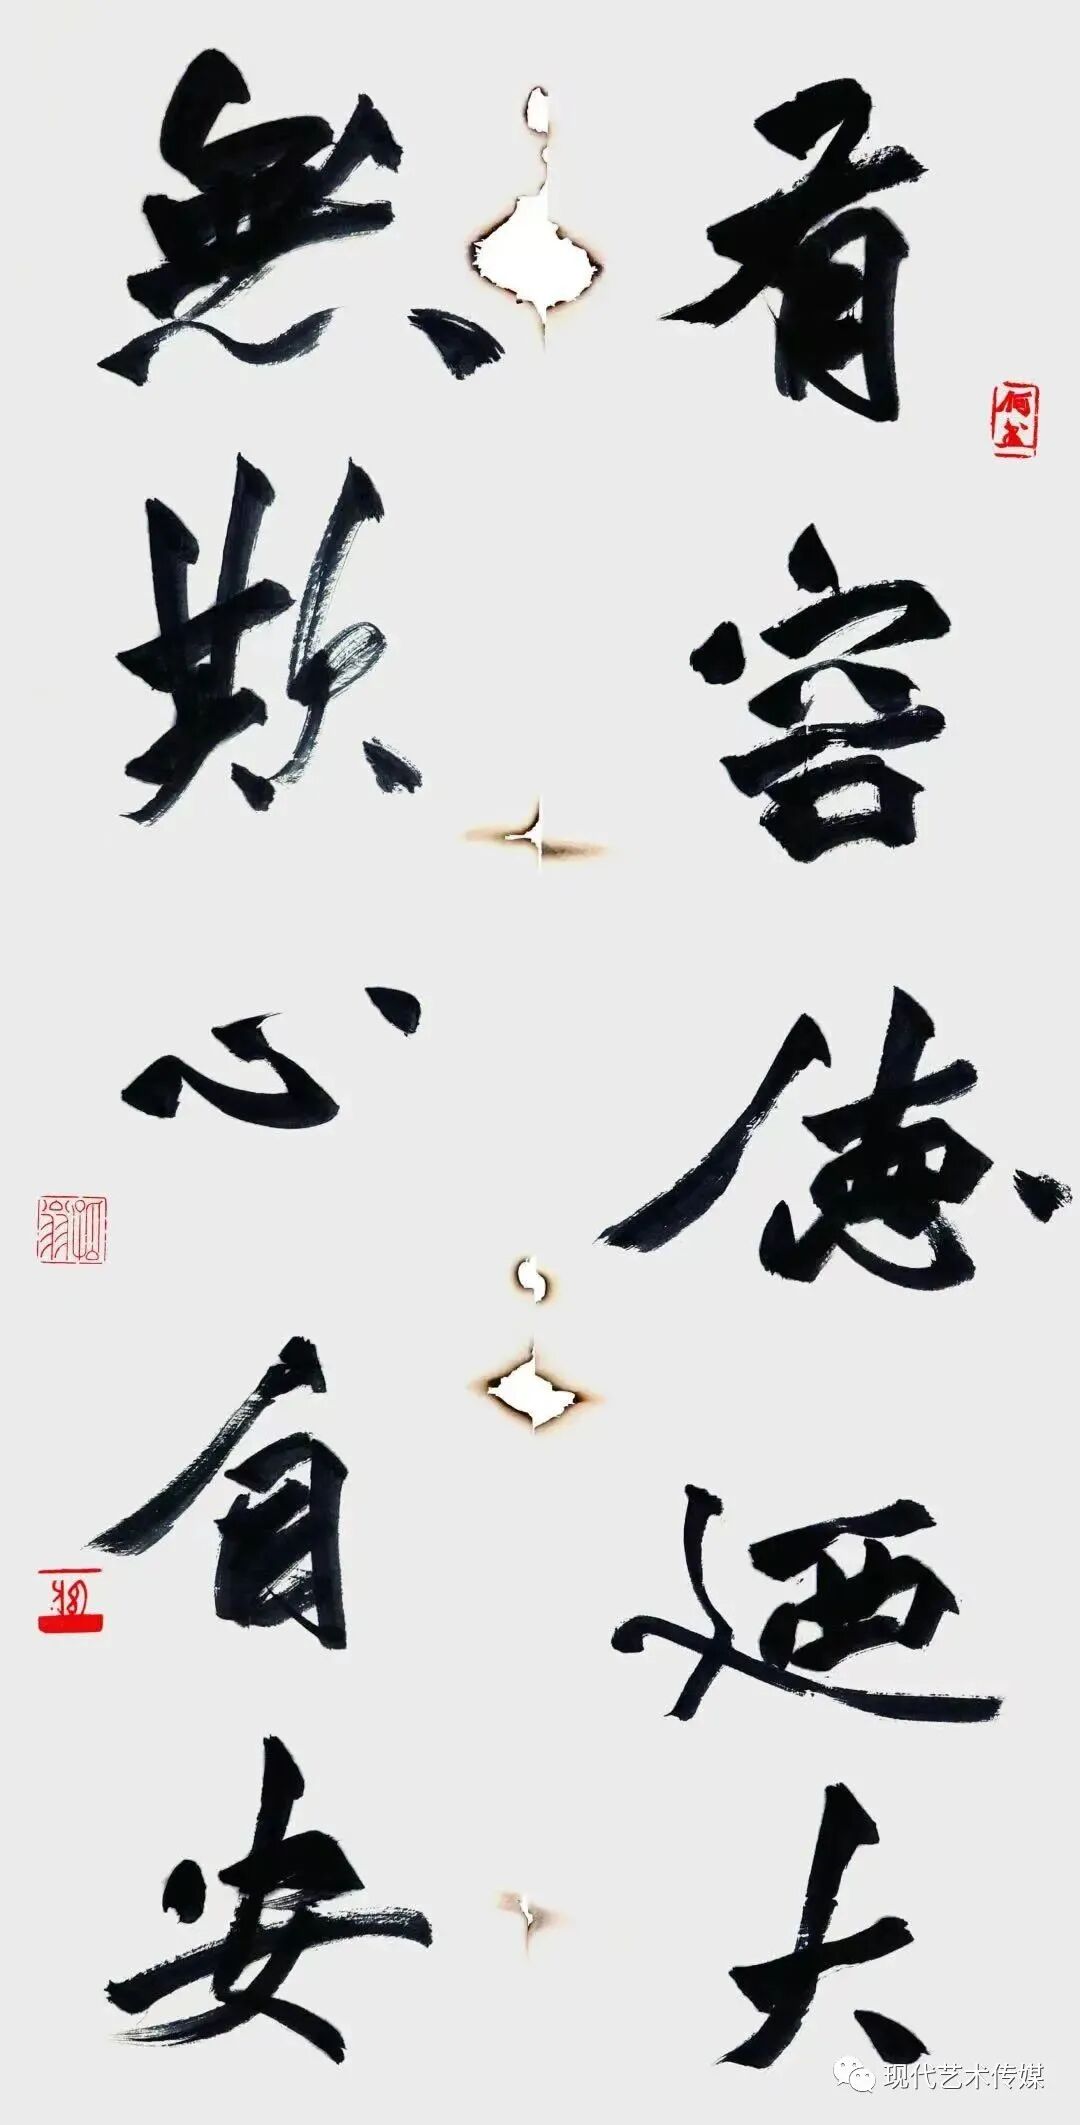 有容德迺大
無欺心自安
现代艺术传媒